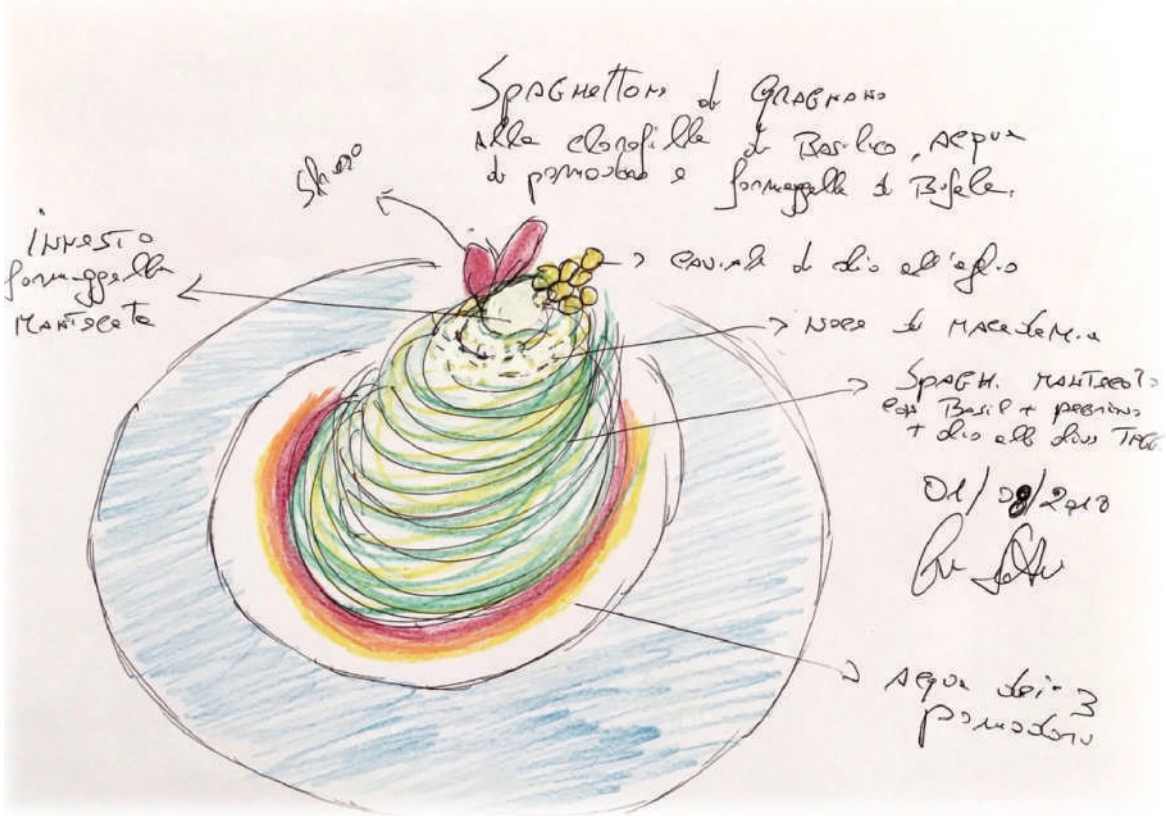 Spaghettoni di Gragnano
alla clorofilla di Basilico, acqua
di pomodoro e formaggella di Bufala.
Shiso
innesto
formaggella
mantecata
caviale di olio all'aglio
noce di macadamia
Spagh. mantecato
con Basil +
+ olio alle olive Tagg
01/08/2018
acqua dei 3
pomodori